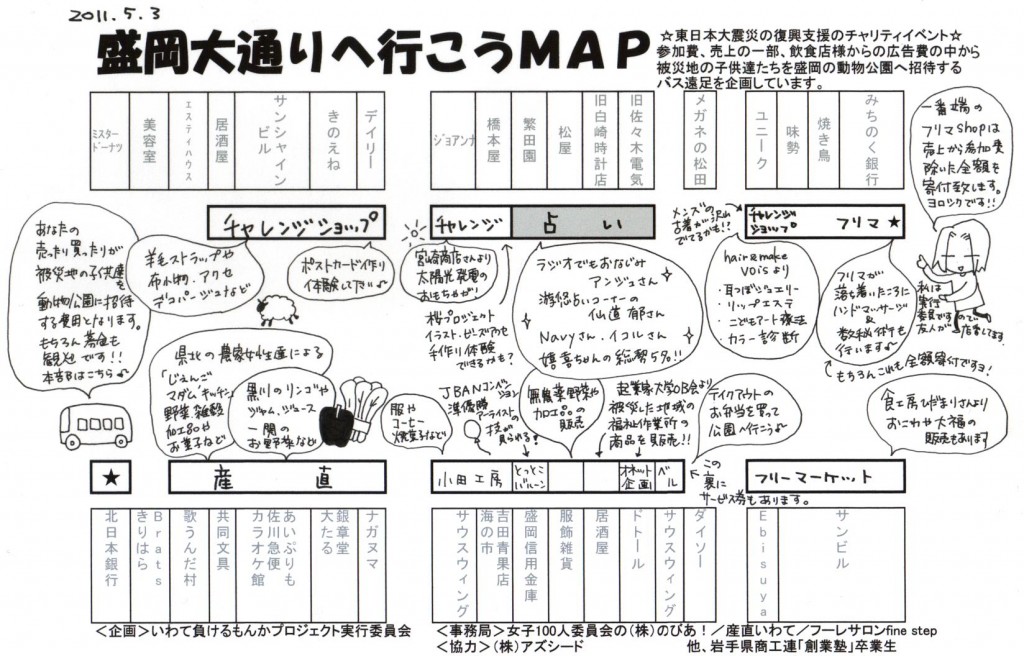 2011.5.3
盛岡大通りへ行こうMAP
☆東日本大震災の復興支援のチャリティイベント☆
参加費、売上の一部、飲食店様からの広告費の中から
被災地の子供達たちを盛岡の動物公園へ招待する
バス遠足を企画しています。
ミスタードーナツ
美容室
エスティハウス
居酒屋
サンシャインビル
きのえね
デイリー
ジョアンナ
橋本屋
繁田園
松屋
旧白崎時計店
旧佐々木電気
メガネの松田
ユニーク
味勢
焼き鳥
みちのく銀行
一番端の
フリマshopは
売上から参加費
除いた全額を
寄付致します。
ヨロシクです!!
チャレンジショップ
チャレンジ
占い
メンズの
古着が沢山
でてるかも!!
チャレンジ
ショップ
フリマ★
あなたの
売ったり買ったりが
被災地の子供達
を
動物公園に招待
する費用となります。
もちろん募金も
観迎です!!
本部はこちら♪
羊毛ストラップや
布小物、アクセ
デコパージュなど
ポストカード作り
体験して下さい♪
宮崎商店さんより
太陽光発電の
おもちゃが!
桜プロジェクト
イラスト・ビーズアクセ
手作り体験
できるかも?
ラジオでもおなじみ
アンジュさん
游侶占いコーナーの
仙道 郁さん
Navyさん。イコルさん
嬉喜ちゃんの総勢5%!!
hair&make
voisより
・耳つぼジュエリー
・リップエステ
・こどもアート療法
・カラー診断
フリマが
落ち着いたころに
ハンドマッサージ
&
数秘術も
行います♪
もちろんこれも全額寄付ですヨ!
私は
実行
委員ですので
友人が
店番してます。
県北の農家女性達による
「じぇんご
マダムキッチン」
野菜、雑穀
加工品や
お菓子など
黒川のリンゴや
ジャム、ジュース
一関の
お野菜など
服や
コーヒー
焼菓子など
JBANコンベンション
準優勝
アーティストの
技が
見られる!
無農薬野菜や
加工品の
販売
起業家大学OB会より
被災した地域の
福祉作業所の
商品を販売!!
テイクアウトの
お弁当を買って
公園へ行こう♪
食工房ひだまりさんより
おにわや大福の
販売もあります
★
産直
小田工房
とっとこ
バルーン
オネット
企画
ベル
この
裏に
サービス券もあります。
フリーマーケット
北日本銀行
きりはら
Brats
歌うんだ村
共同文具
カラオケ館
佐川急便
あいぷりも
大たる
銀章堂
ナガヌマ
サウスウィング
海の市
吉田青果店
盛岡信用金庫
服飾雑貨
居酒屋
ドトール
サウスウィング
ダイソー
Ebisuya
サンビル
＜企画＞いわて負けるもんかプロジェクト実行委員会
＜事務局＞女子100人委員会の(株)のびあ！／産直いわて／フーレサロンfine step
＜協力＞(株)アズシード
他、岩手県商工連「創業塾」卒業生